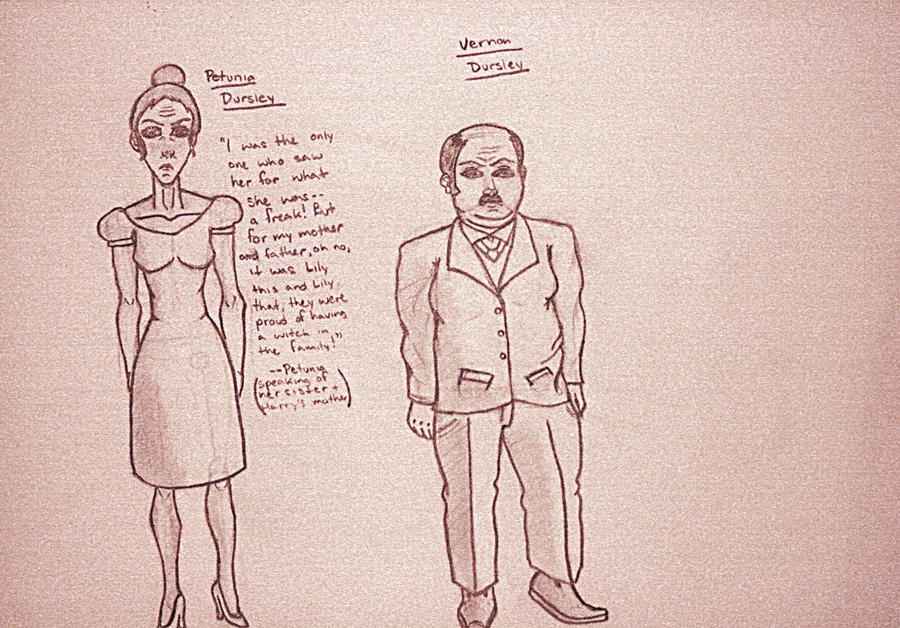 Petunia
Dursley
"I was the only
one who saw
her for what
she was--
a freak! But
for my mother
and father, oh no,
it was Lily
this and Lily
that, they were
proud of having
a witch in
the family!"
--Petunia
(speaking of
her sister +
Harry's mother)
Vernon
Dursley